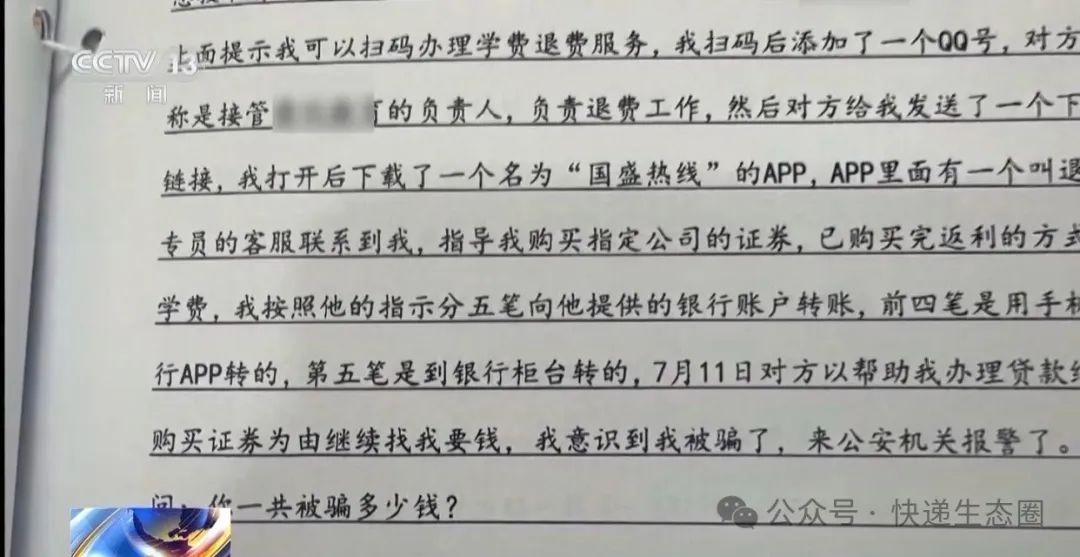 上面提示我可以扫码办理学费退费服务，我扫码后添加了一个QQ号，对方
称是接管 的负责人，负责退费工作，然后对方给我发送了一个下
链接，我打开后下载了一个名为“国盛热线”的APP，APP里面有一个叫退
专员的客服联系到我，指导我购买指定公司的证券，已购买完返利的方式
学费，我按照他的指示分五笔向他提供的银行账户转账，前四笔是用手机
行APP转的，第五笔是到银行柜台转的，7月11日对方以帮助我办理贷款
购买证券为由继续找我要钱，我意识到我被骗了，来公安机关报警了。
问：你一共被骗多少钱？
CCTV 13
新闻
公众号·快递生态圈